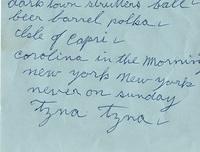 dark town strutters ball
beer barrel polka
Isle of Capri
Carolina in the Morning
new york New york
never on sunday
Tzna Tzna